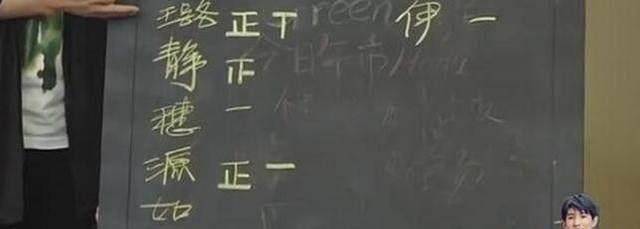 璐 正下 伊 一
静 正
穗 一
源 正一
如
reen
今日午市